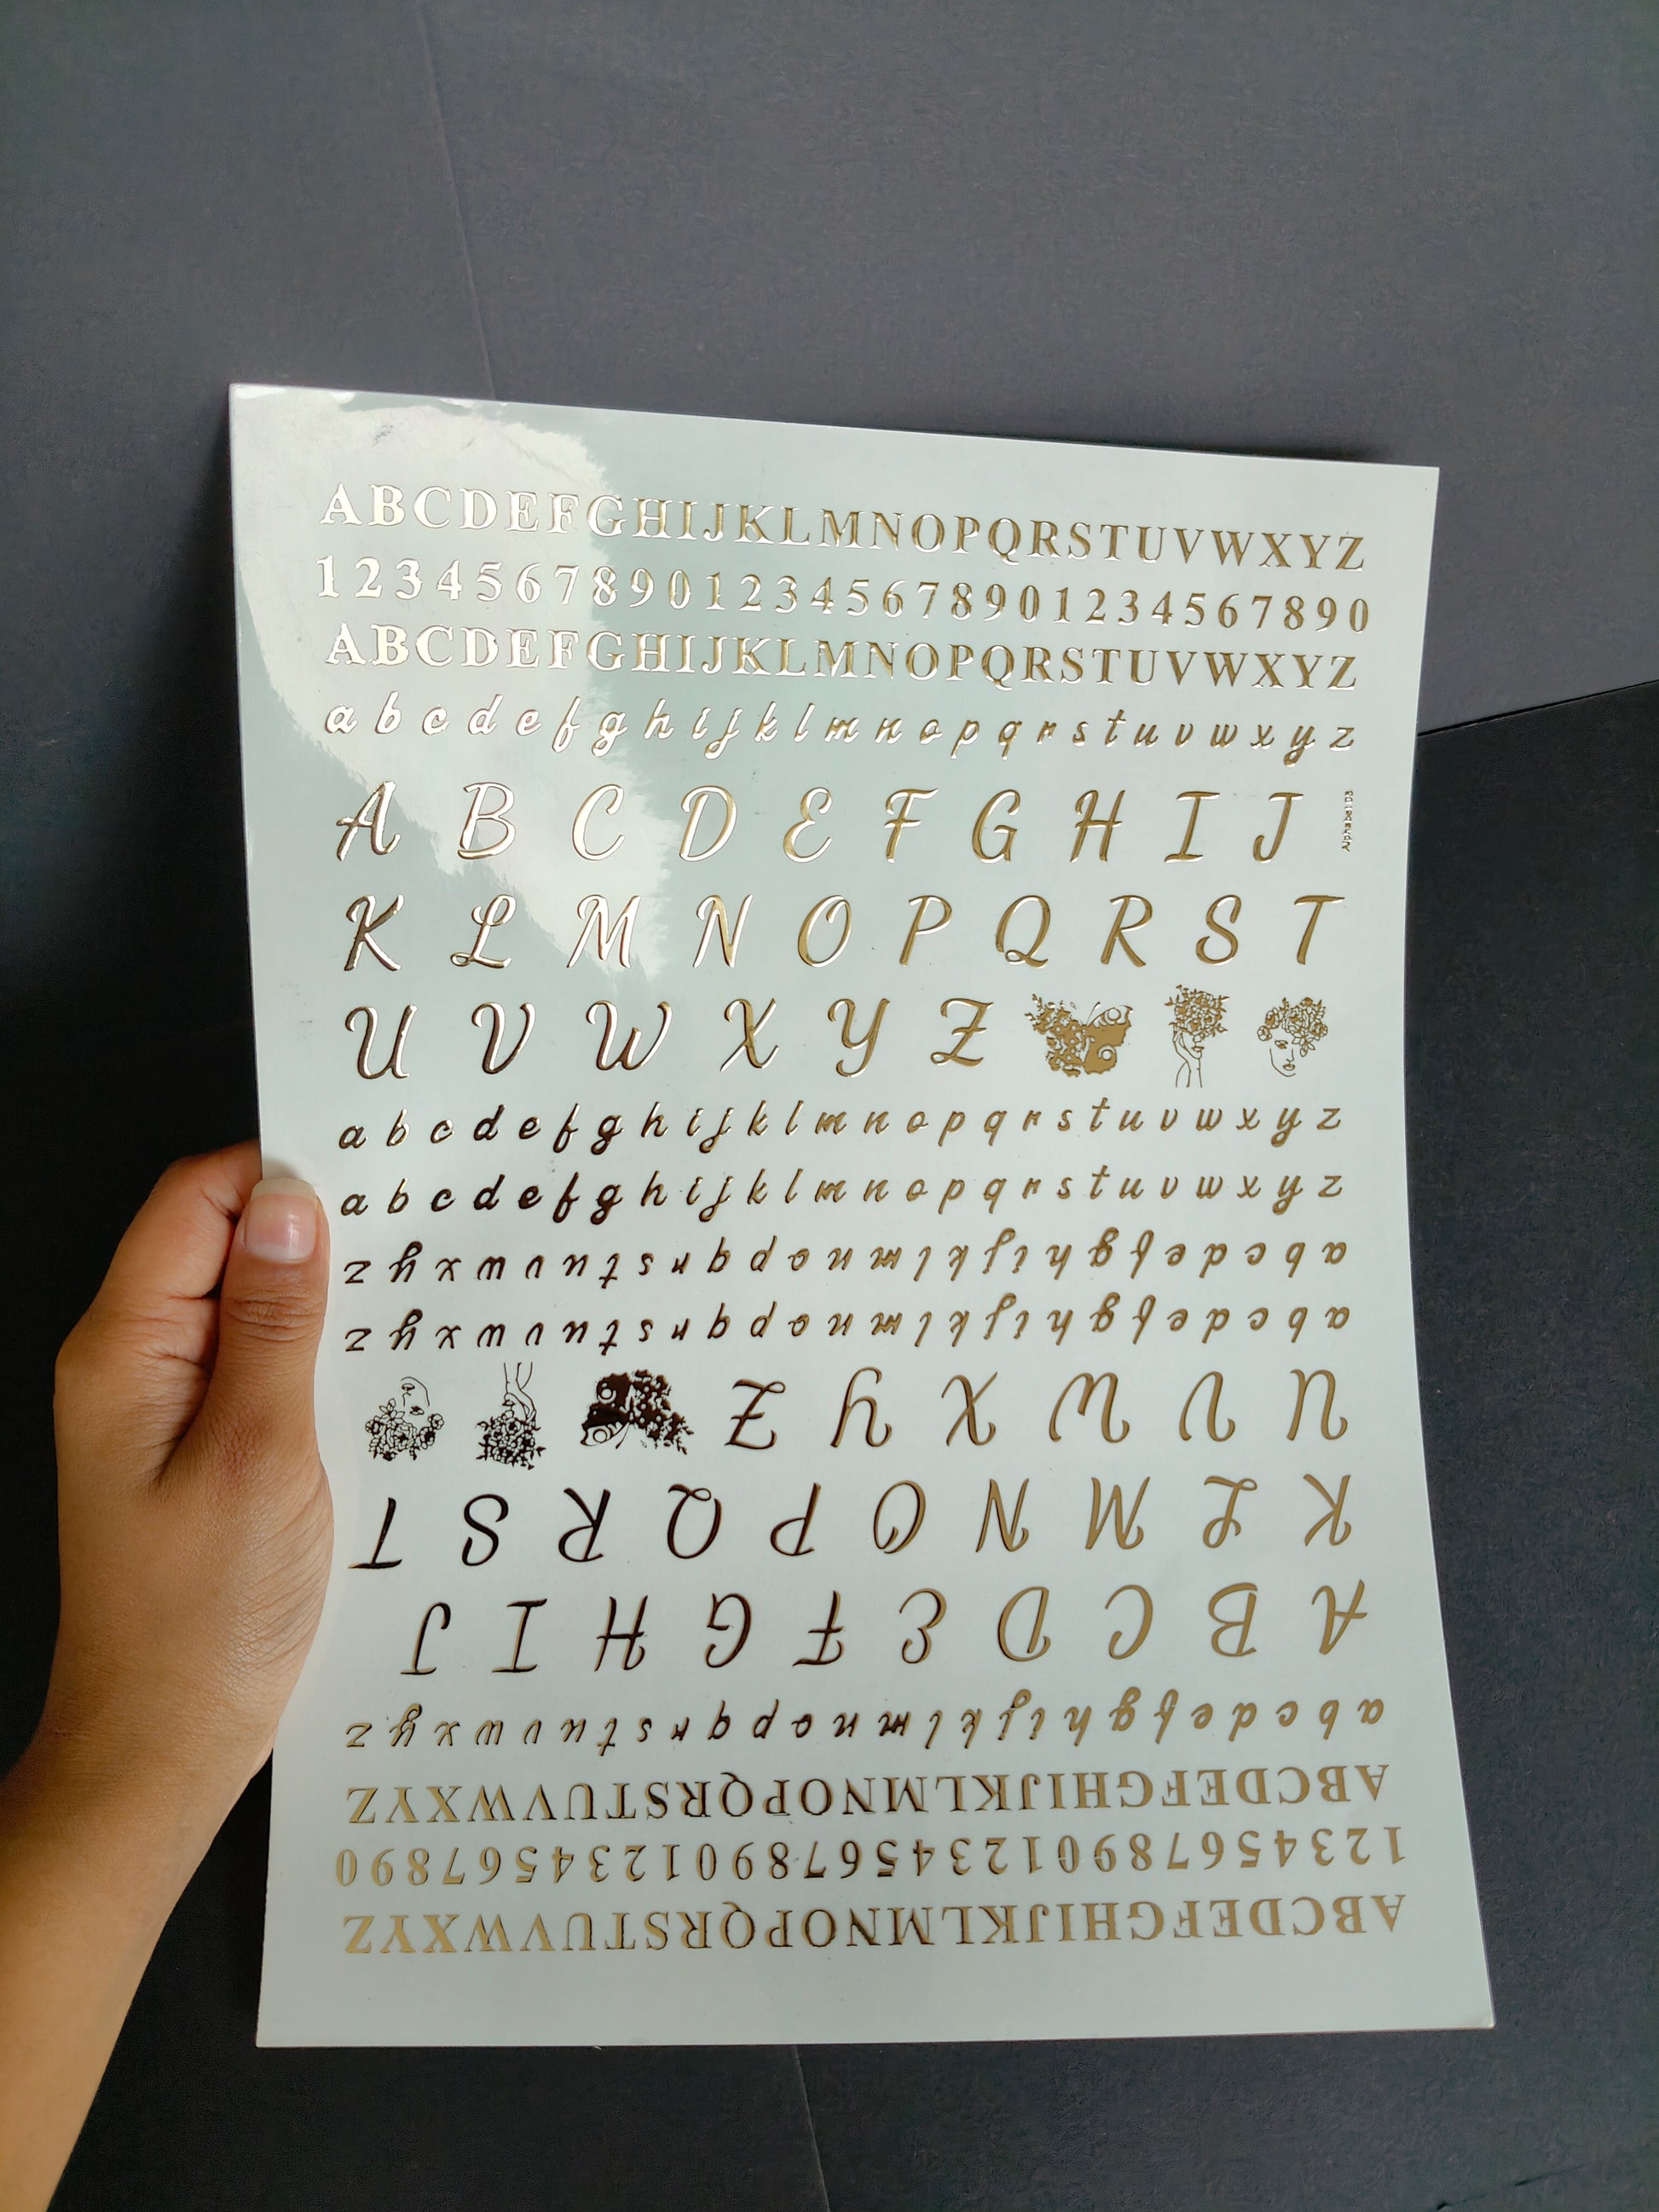 ABCDEFGHIJKLMNOPQRSTUVWXYZ
123456789012345678901234567890
ABCDEFGHIJKLMNOPQRSTUVWXYZ
a b c d e f g h i j k l m n o p q r s t u v w x y z
A B C D E F G H I J
Alphabet 03
K L M N O P Q R S T
U V W X Y Z
a b c d e f g h i j k l m n o p q r s t u v w x y z
a b c d e f g h i j k l m n o p q r s t u v w x y z
a b c d e f g h i j k l m n o p q r s t u v w x y z
a b c d e f g h i j k l m n o p q r s t u v w x y z
U V W X Y Z
K L M N O P Q R S T
A B C D E F G H I J
a b c d e f g h i j k l m n o p q r s t u v w x y z
ABCDEFGHIJKLMNOPQRSTUVWXYZ
123456789012345678901234567890
ABCDEFGHIJKLMNOPQRSTUVWXYZ